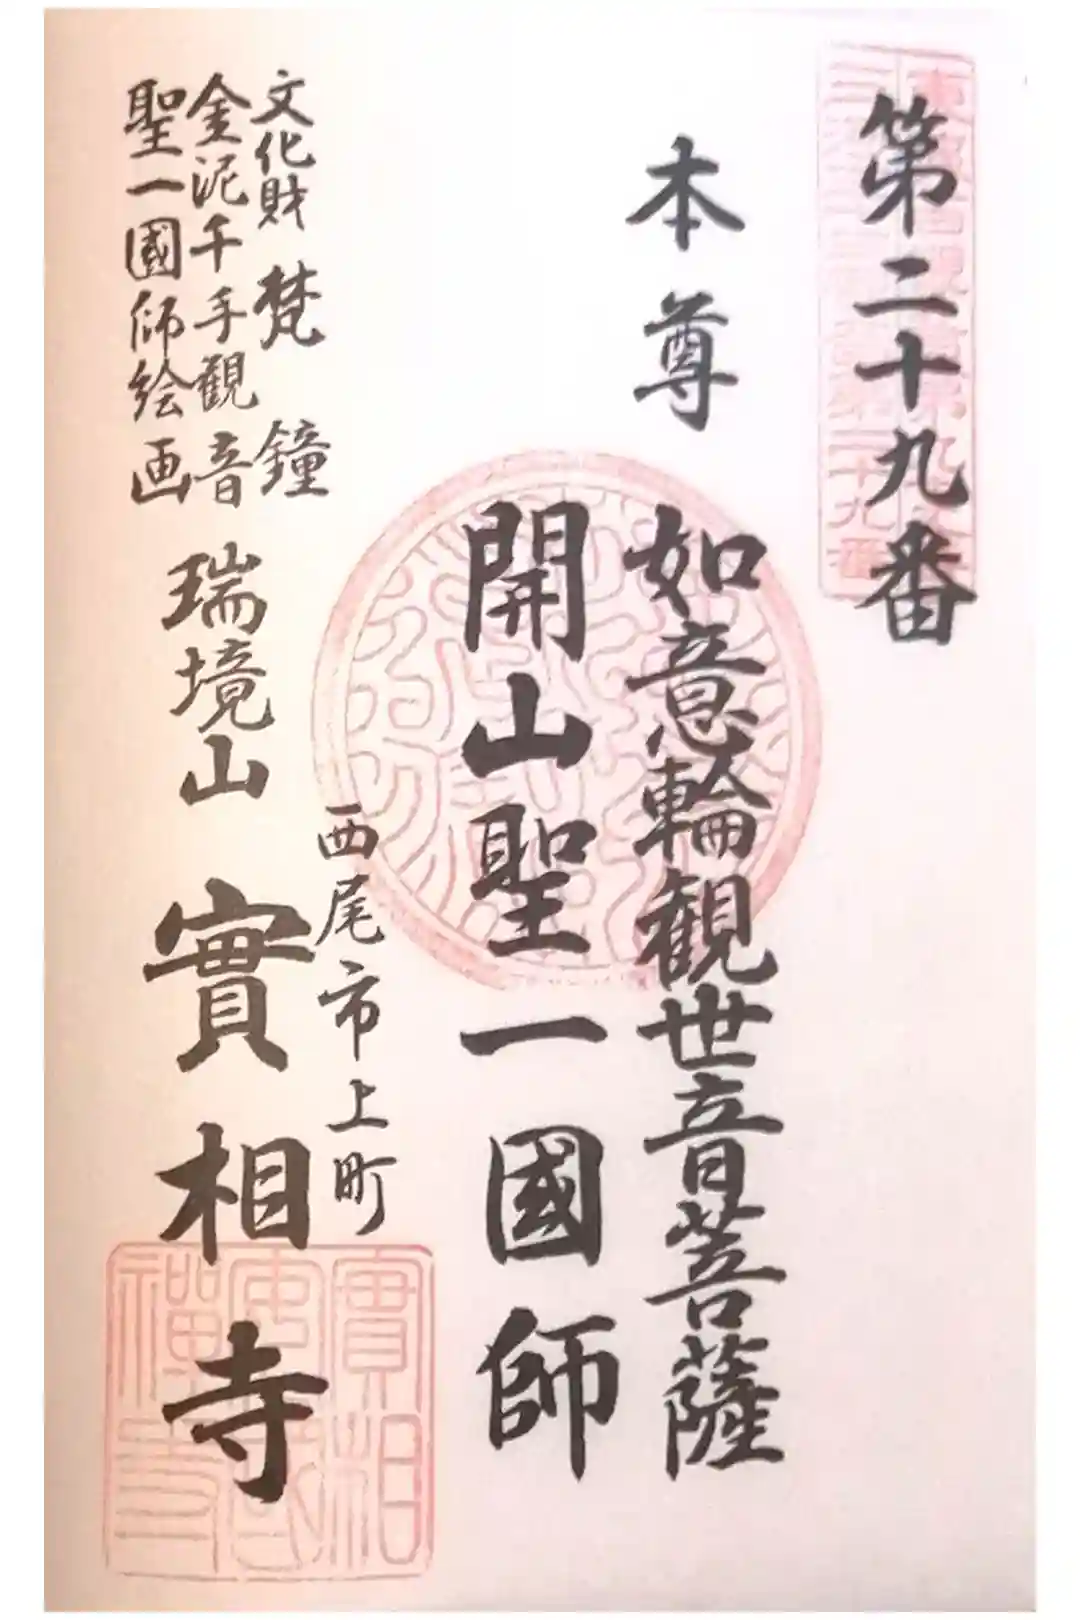 第二十九番
本尊
如意輪観世音菩薩
開山聖一國師
文化財 梵鐘
金泥千手観音
聖一國師絵画
西尾市上町
瑞境山 實相寺